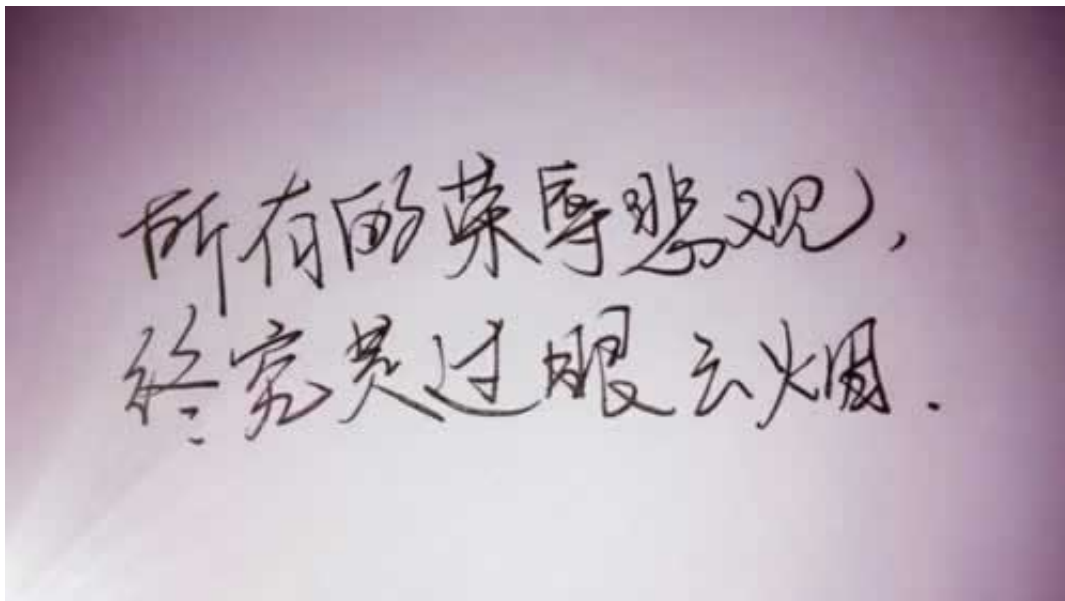 所有的荣辱悲观,
终究是过眼云烟.